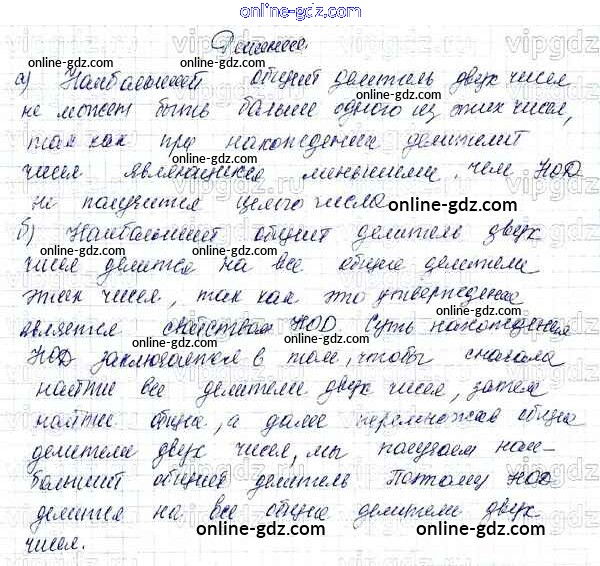 online-gdz.com
Решение.
а) Наибольший общий делитель двух чисел
не может быть больше одного из этих чисел,
online-gdz.com
так как при нахождении делителей
online-gdz.com
чисел являющихся меньшими, чем НОД
не получится целого числа.
online-gdz.com
б) Наибольший общий делитель двух
online-gdz.com
чисел делится на все общие делители
этих чисел, так как это утверждение
online-gdz.com
является свойством НОД. Суть нахождения
НОД заключается в том, чтобы сначала
найти все делители двух чисел, затем
найти общие, а далее перемножав общие
делители двух чисел, мы получаем наи-
больший общий делитель. Поэтому НОД
делится на все общие делители двух
online-gdz.com
чисел.